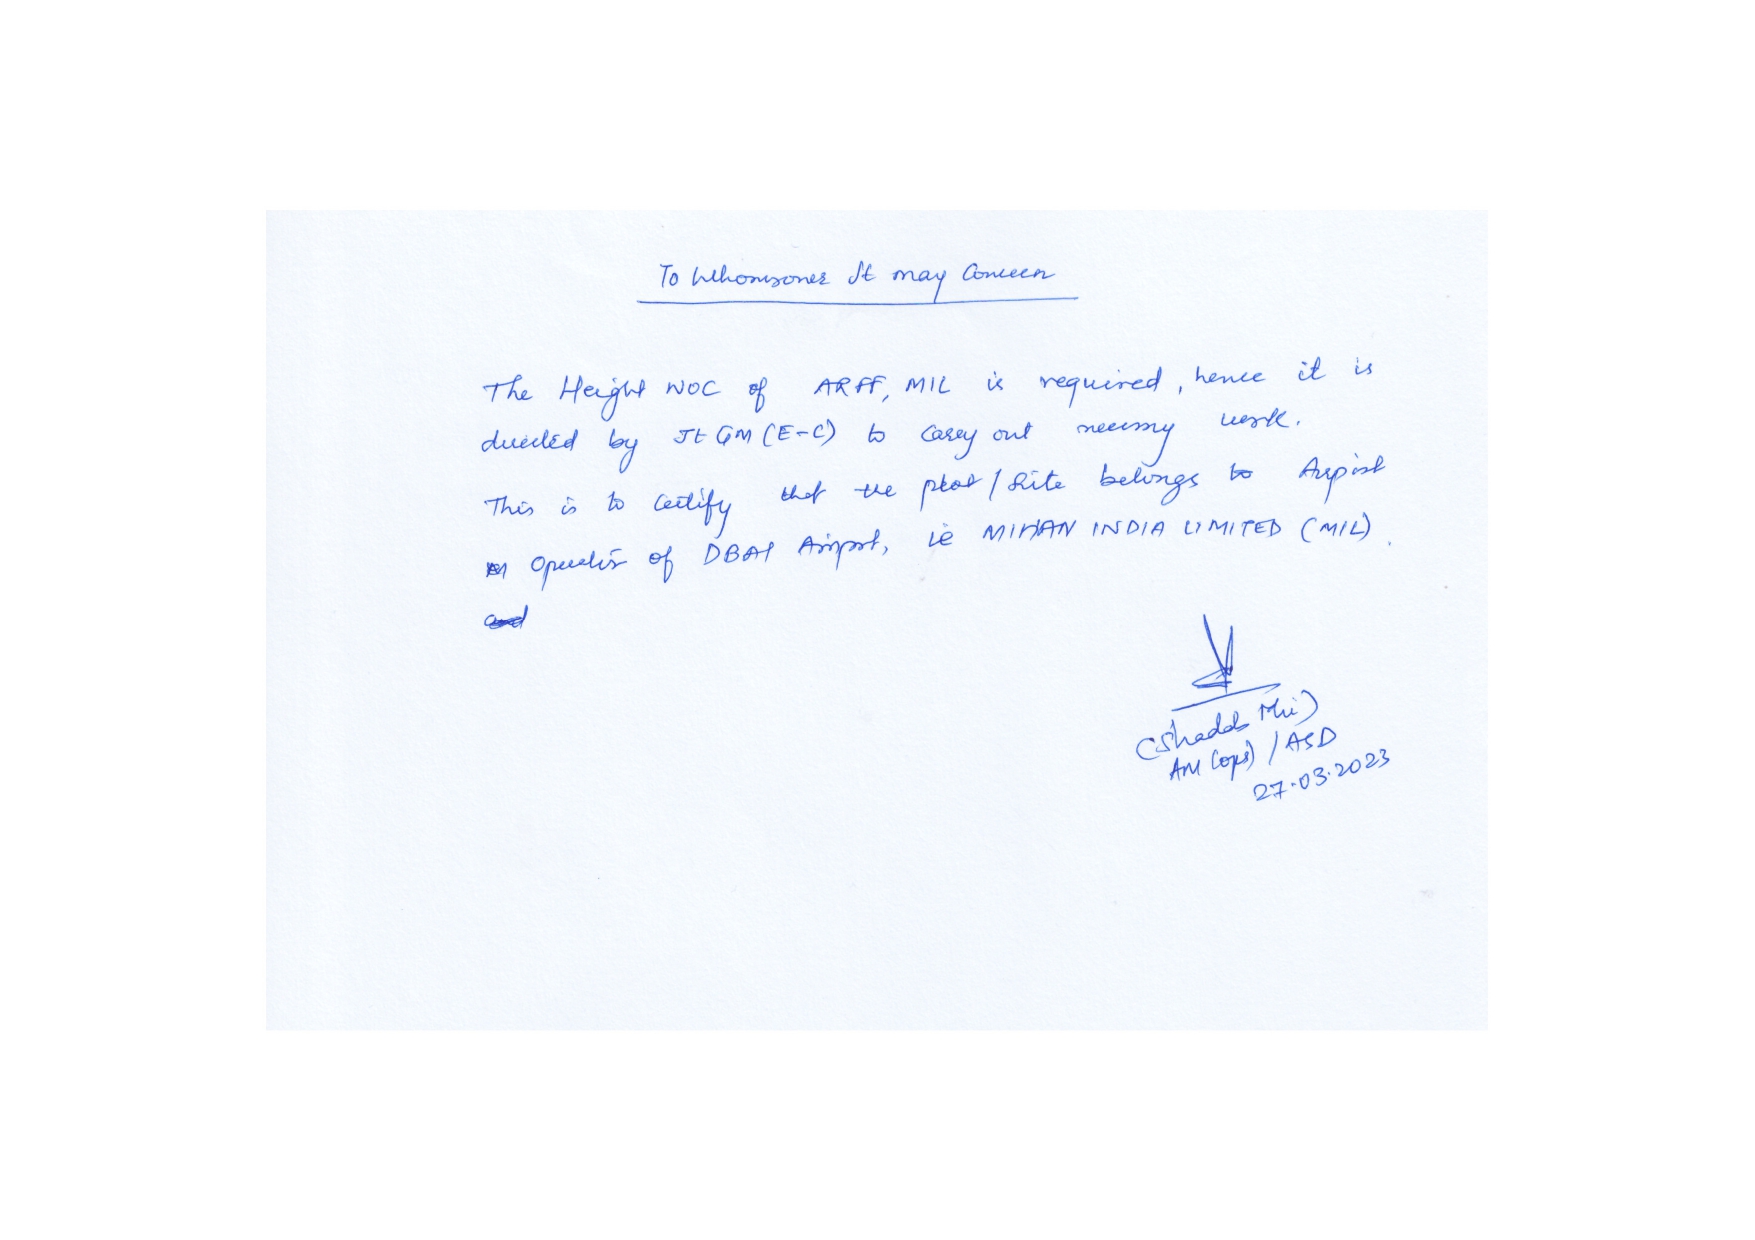 To Whomsoever It may Concern
The Height NOC of ARFF, MIL is required, hence it is
directed by Jt GM (E-C) to carry out necessary work.
This is to certify that the plot / Site belongs to Airport
Operator of DBAI Airport, ie MIHAN INDIA LIMITED (MIL).
and
(Shadab
AM (ops) / ASD
27.03.2023